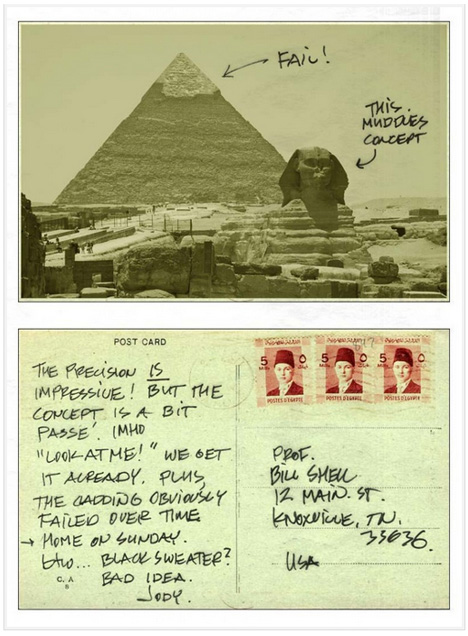 FAIL!
THIS
MUDDLES
CONCEPT
POST CARD
THE PRECISION IS
IMPRESSIVE! BUT THE
CONCEPT IS A BIT
PASSÉ. IMHO
"LOOK AT ME!" WE GET
IT ALREADY. PLUS,
THE CLADDING OBVIOUSLY
FAILED OVER TIME.
→ HOME ON SUNDAY.
BTW... BLACK SWEATER?
BAD IDEA.
JODY.
C. A
5 MILLS 5 MILLS 5 MILLS
POSTES D'EGYPTE POSTES D'EGYPTE POSTES D'EGYPTE
PROF.
BILL SHELL
12 MAIN. ST.
KNOXVILLE, TN.
33636.
USA